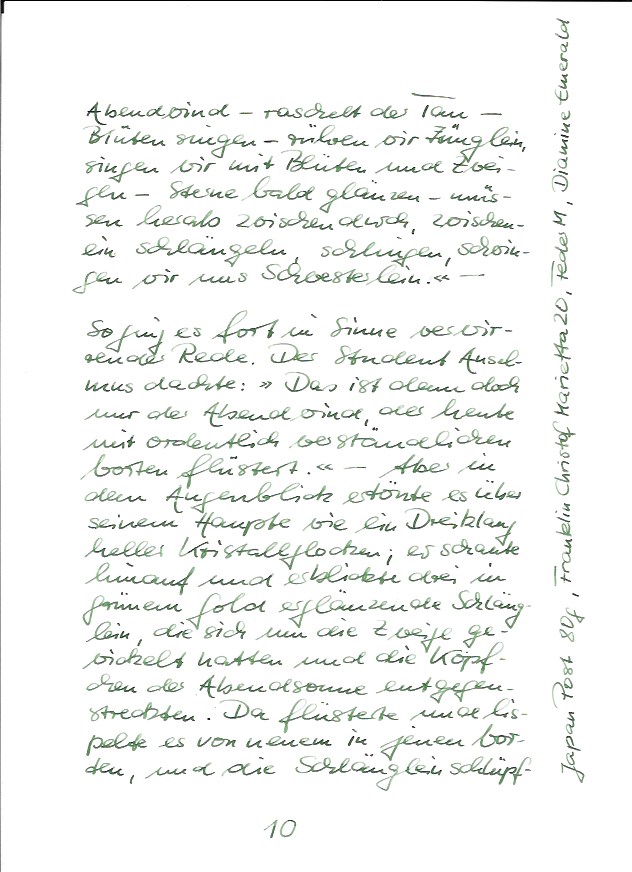 Abendwind – raschelt der Tau –
Blüten singen – rühren wir Zünglein,
singen wir mit Blüten und Zwei-
gen – Sterne bald glänzen – müs-
sen herab zwischendurch, zwischen-
ein schlängeln, schlingen, schwin-
gen wir uns Schwesterlein.« –
So ging es fort in Sinne verwir-
render Rede. Der Student Ansel-
mus dachte: » Das ist denn doch
nur der Abendwind, der heute
mit ordentlich verständlichen
Worten flüstert.« – Aber in
dem Augenblick ertönte es über
seinem Haupte wie ein Dreiklang
heller Kristallglocken; er schaute
hinauf und erblickte drei in
grünem Gold erglänzende Schläng-
lein, die sich um die Zweige ge-
wickelt hatten und die Köpf-
chen der Abendsonne entgegen-
streckten. Da flüsterte und lis-
pelte es von neuem in jenen Wor-
ten, und die Schlänglein schlüpf-
10
Japan Post 80g, Franklin Christof Marietta 20, Feder M, Diamine Emerald